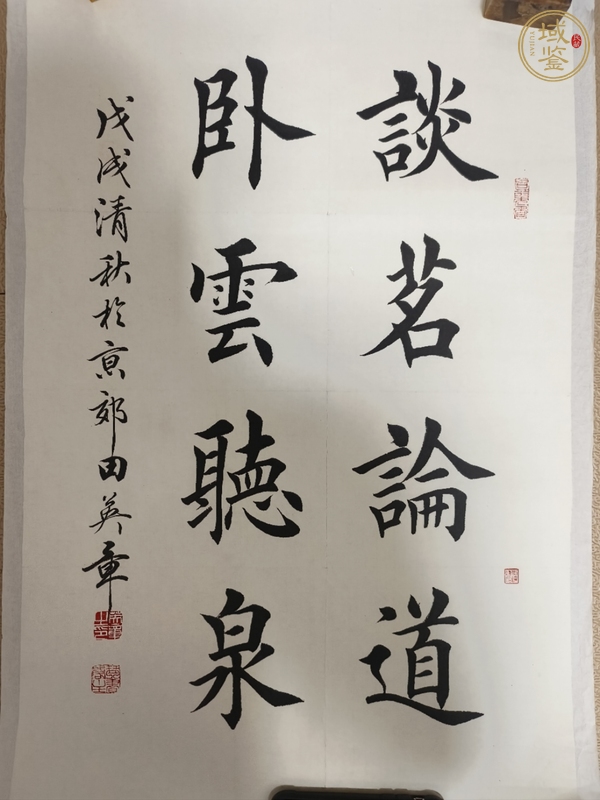 談茗論道
卧雲聽泉
戊戌清秋於京郊田英章
域鉴
YUJIAN